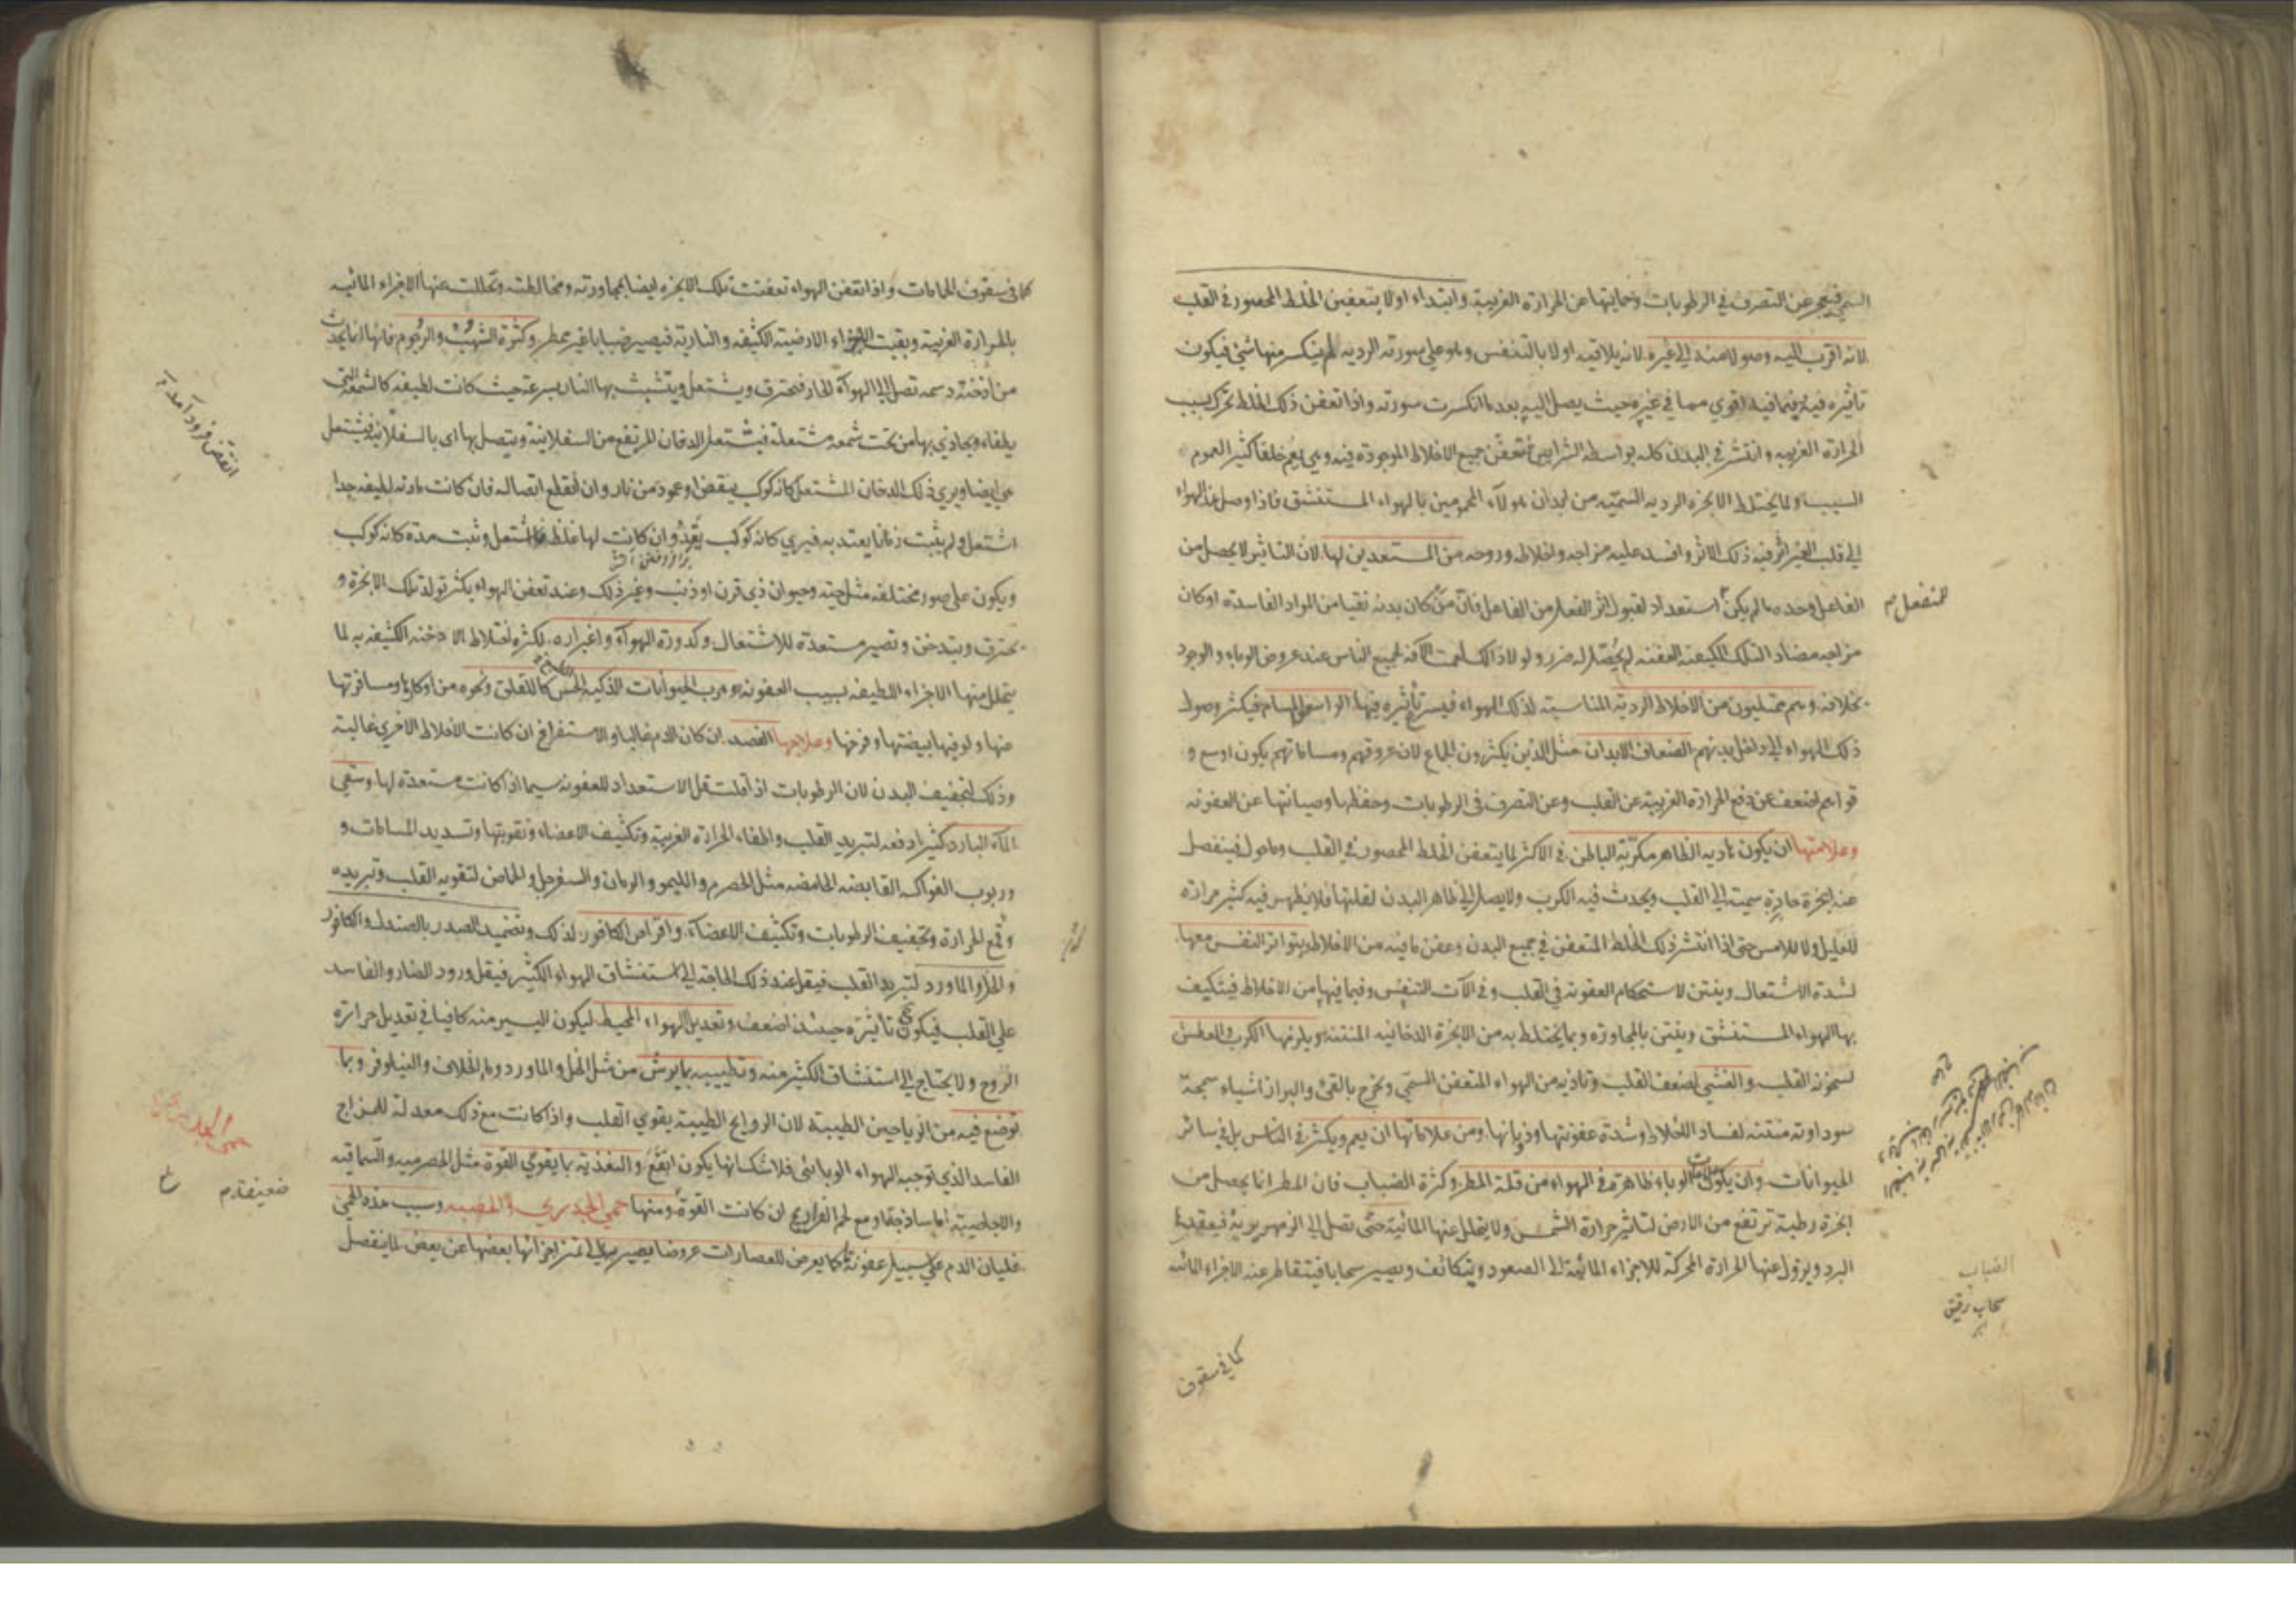 السمي فيعجز عن التصرف في الرطوبات وحمايتها عن الحرارة الغريبة وابتداء اولا بتعفين الخلط المحصور في القلب
لانه اقرب اليه وصولا منه الى غيره لانه يلاقيه اولا بالتنفس وهو على سورته الردية لم ينكسر منها شئ فيكون
تاثيره فيه وفيما فيه اقوي مما في غيره حيث يصل اليه بعد ما انكسرت سورته واذا تعفن ذلك الخلط تحرك بسبب
الحرارة الغريبه وانتشر في البدن كله بواسطه الشرايين فتعفن جميع الاخلاط الموجودة فيه وهي يعم خلقا كثير العموم
السبب ولما يختلط الابخره الرديه السميه من ابدان هولاء المحمومين بالهواء المستنشق فاذا وصل هذا الهواء
الى قلب الغير اثر فيه ذلك الاثر وافسد عليه مزاجه واخلاطه وروحه من المستعدين لها لان التاثير لا يحصل من
الفاعل وحده ما لم يكن استعداد لقبول اثر الفعل من الفاعل فان من كان بدنه نقيا من المواد الفاسدة او كان
مزاجه مضاد التلك الكيفيه العفنه لم يحصل له ضرر ولولا ذلك لعمت الآفه لجميع الناس عند عروض الوباء والوجود
بخلافه وهم ممتليون من الاخلاط الرديه المناسبة لذلك الهواء فيسرع تاثيره فيها الواسعي المسام فيكثر وصول
ذلك الهواء الى داخل بدنهم الضعاف الابدان مثل الذين يكثرون الجماع لان عروقهم ومساماتهم يكون اوسع و
قواهم اضعف عن دفع الحرارة الغريبة عن القلب وعن التصرف في الرطوبات وحفظها وصيانتها عن العفونه
وعلامتها ان يكون هاديه الظاهر مكربة الباطن في الاكثر لما يتعفن الخلط المحصور في القلب وما حوله فينفصل
عنه ابخرة حادة سمية الى القلب ويحدث فيه الكرب ولا يصل الى ظاهر البدن لقلتها فلا يظهر فيه كثير حرارة
للعليل ولا للامس حتى اذا انتشر ذلك الخلط المتعفن في جميع البدن وعفن ما فيه من الاخلاط ويتواتر النفس معها
لشدة الاشتعال وينتن لاستحكام العفونه في القلب وفي الآت التنفس وفيما فيها من الاخلاط فيتكيف
بها الهواء المستنشق وينتن بالمجاورة وبما يختلط به من الابخرة الدخانيه المنتنه ويلزمها الكرب والعطش
لسخونه القلب والغشي لضعف القلب وتاذيه من الهواء المتعفن السمي وتخرج بالقئ والبراز اشياء سمجة
سوداوته منتنه لفساد الاخلاط وشدة عفونتها وذوبانها ومن علاماتها ان يعم ويكثر في الناس بل في سائر
الحيوانات وان يكون علامات الوباء ظاهرة في الهواء من قلة المطر وكثرة الضباب فان المطر انما يحصل من
ابخرة رطبة ترتفع من الارض لتاثير حرارة الشمس ولا يتحلل عنها المائية حتى تصل الى الزمهريرية فيعقدها
البرد ويزول عنها الحرارة المحركة للاجزاء المائية الى الصعود ويتكاثف ويصير سحابا فيتقاطر عنه الاجزاء المائيه
المنفعل م
الضباب
سحاب رقيق
كما في سقوف
كما في سقوف الحمامات واذا تعفن الهواء تعفنت تلك الابخره ايضا بمجاورته ومخالطته وتحللت عنها الاجزاء المائيه
بالحرارة الغريبة وبقيت الاجزاء الارضية الكثيفه والناريه فيصير ضبابا غير ممطر وكثرة الشهب والرجوم فانها انما يحدث
من ادخنة دسمه تصل الى الهواء الحار فتحترق ويشتعل ويتشبث بها النار بسرعة حيث كانت لطيفه كالشمعة التي
يطفاء ويحاذي بها من تحت شمعه مشتعلة فيشتعل الدخان المرتفع من السفلانية ويتصل بها اى بالسفلانية فيشتعل
هي ايضا ويري ذلك الدخان المشتعل كانه كوكب ينقض او عود من نار وان انقطع اتصاله فان كانت مادته لطيفه جدا
اشتعل ولم يثبت زمانا يعتد به فيري كانه كوكب يقد وان كانت لها غلظ ما اشتعل وثبت مدة كانه كوكب
ويكون على صور مختلفه مثل حيه وحيوان ذي قرن او ذنب وغير ذلك وعند تعفن الهواء يكثر تولد تلك الابخرة و
تحترق ويتدخن وتصير مستعدة للاشتعال وكدورة الهواء واغبراره لكثره اختلاط الادخنه الكثيفه به لما
يتحلل منها الاجزاء اللطيفه بسبب العفونه وهرب الحيوانات الذكيه الحس كاللقلق ونحوه من اوكارها ومسافرتها
عنها ولو فيها بيضتها وفرخها وعلاجها الفصد ان كان الدم غالبا والاستفراغ ان كانت الاخلاط الاخري غالبة
وذلك لتجفيف البدن لان الرطوبات اذا قلت قل الاستعداد للعفونه سيما اذا كانت مستعدة لها وسقي
الماء البارد كثيرا دفعه لتبريد القلب واطفاء الحرارة الغريبة وتكثيف الاعضاء وتقويتها وتسديد المسامات و
وربوب الفواكه القابضه الحامضه مثل الحصرم والليمو والرمان والسفرجل والحماض لتقويه القلب وتبريده
وقمع الحرارة وتجفيف الرطوبات وتكثيف الاعضاء واقراص الكافور لذلك وتضميد الصدر بالصندل والكافور
والخل والماورد لتبريد القلب فيقل عند ذلك الحاجة الى استنشاق الهواء الكثير فيقل ورود الضار والفاسد
على القلب فيكون تاثيره حينئذ اضعف وتعديل الهواء المحيط ليكون اليسير منه كافيا في تعديل حرارة
الروح ولا يحتاج الى استنشاق الكثير منه وتطييبه بما يرش من مثل الخل والماورد وماء الخلاف والنيلوفر وبما
توضع فيه من الرياحين الطيبة لان الروايح الطيبة يقوي القلب واذا كانت مع ذلك معدلة للمزاج
الفاسد الذي توجبه الهواء الوبائي فلا شك انها يكون انفع والتغذية بما يقوي القوة مثل الحصرميه والسماقيه
والاجاصية اما ساذجة او مع لحم الفراريج ان كانت القوة ومنها حمى الجدري والحصبه وسبب هذه الحمى
غليان الدم على سبيل عفونة ما كما يعرض للعصارات عروضا يصير بها الى تميز اجزائها بعضها عن بعض لما ينفصل
انقض فرود آمد
حمى الجدري
ضعيفة م